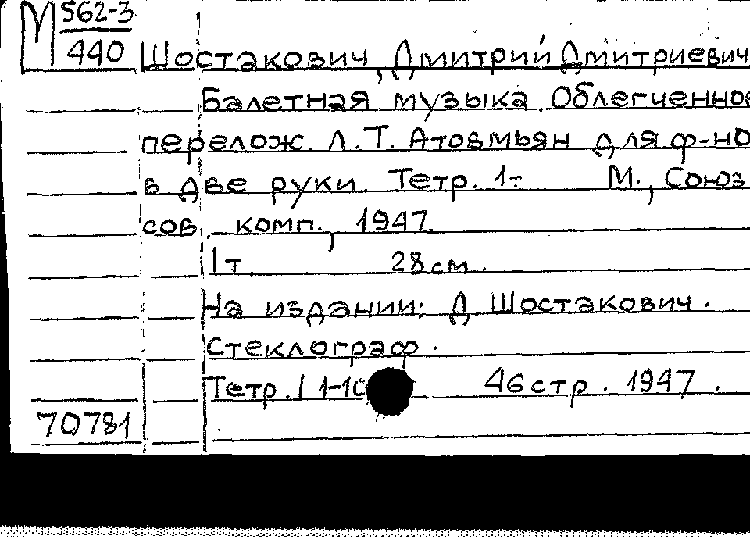 М 562-3
440
Шостакович, Дмитрий Дмитриевич
Балетная музыка. Облегченное
перелож. Л.Т. Атовмьян для ф-но
в две руки. Тетр. 1- М., Союз
сов. комп., 1947.
1 т 28 см.
На издании: Д Шостакович.
Стеклограф.
Тетр. 1 46 стр. 1947.
70781